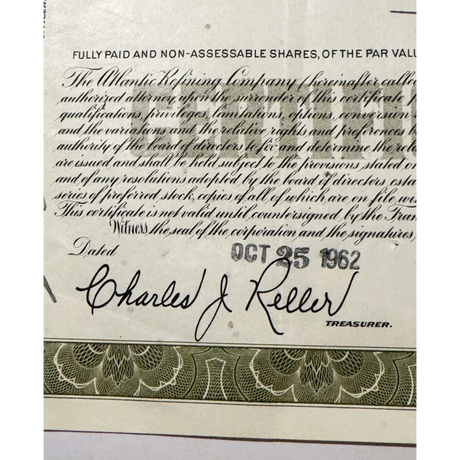 FULLY PAID AND NON-ASSESSABLE SHARES, OF THE PAR VALU
The Atlantic Refining Company (hereinafter called
authorized attorney upon the surrender of this certificate p
qualifications, privileges, limitations, options, conversion
and the variations and the relative rights and preferences b
authority of the board of directors to fix and determine the rela
are issued and shall be held subject to the provisions, stated o
and of any resolutions adopted by the board of directors esta
series of preferred stock, copies of all of which are on file wi
This certificate is not valid until countersigned by the Tran
Witness the seal of the corporation and the signatures,
Dated OCT 25 1962
Charles J Reller
TREASURER.